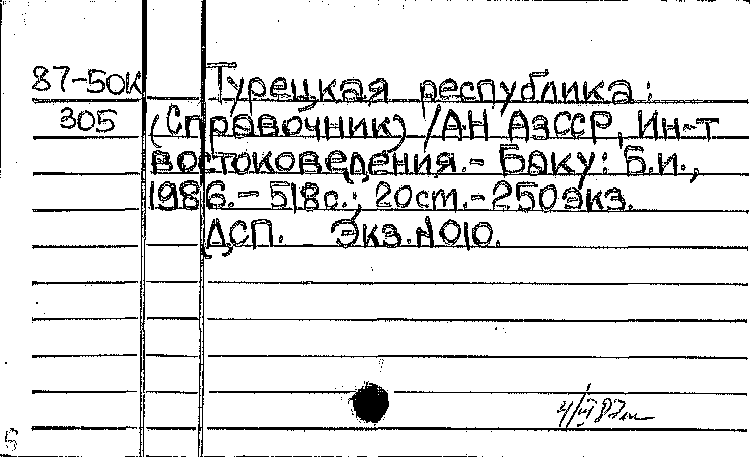 87-50К Турецкая республика:
305 (Справочник) /АН АзССР, Ин-т
востоковедения.- Баку: Б.и.,
1986.- 518с.; 20см.- 250экз.
ДСП. Экз.N010.
5